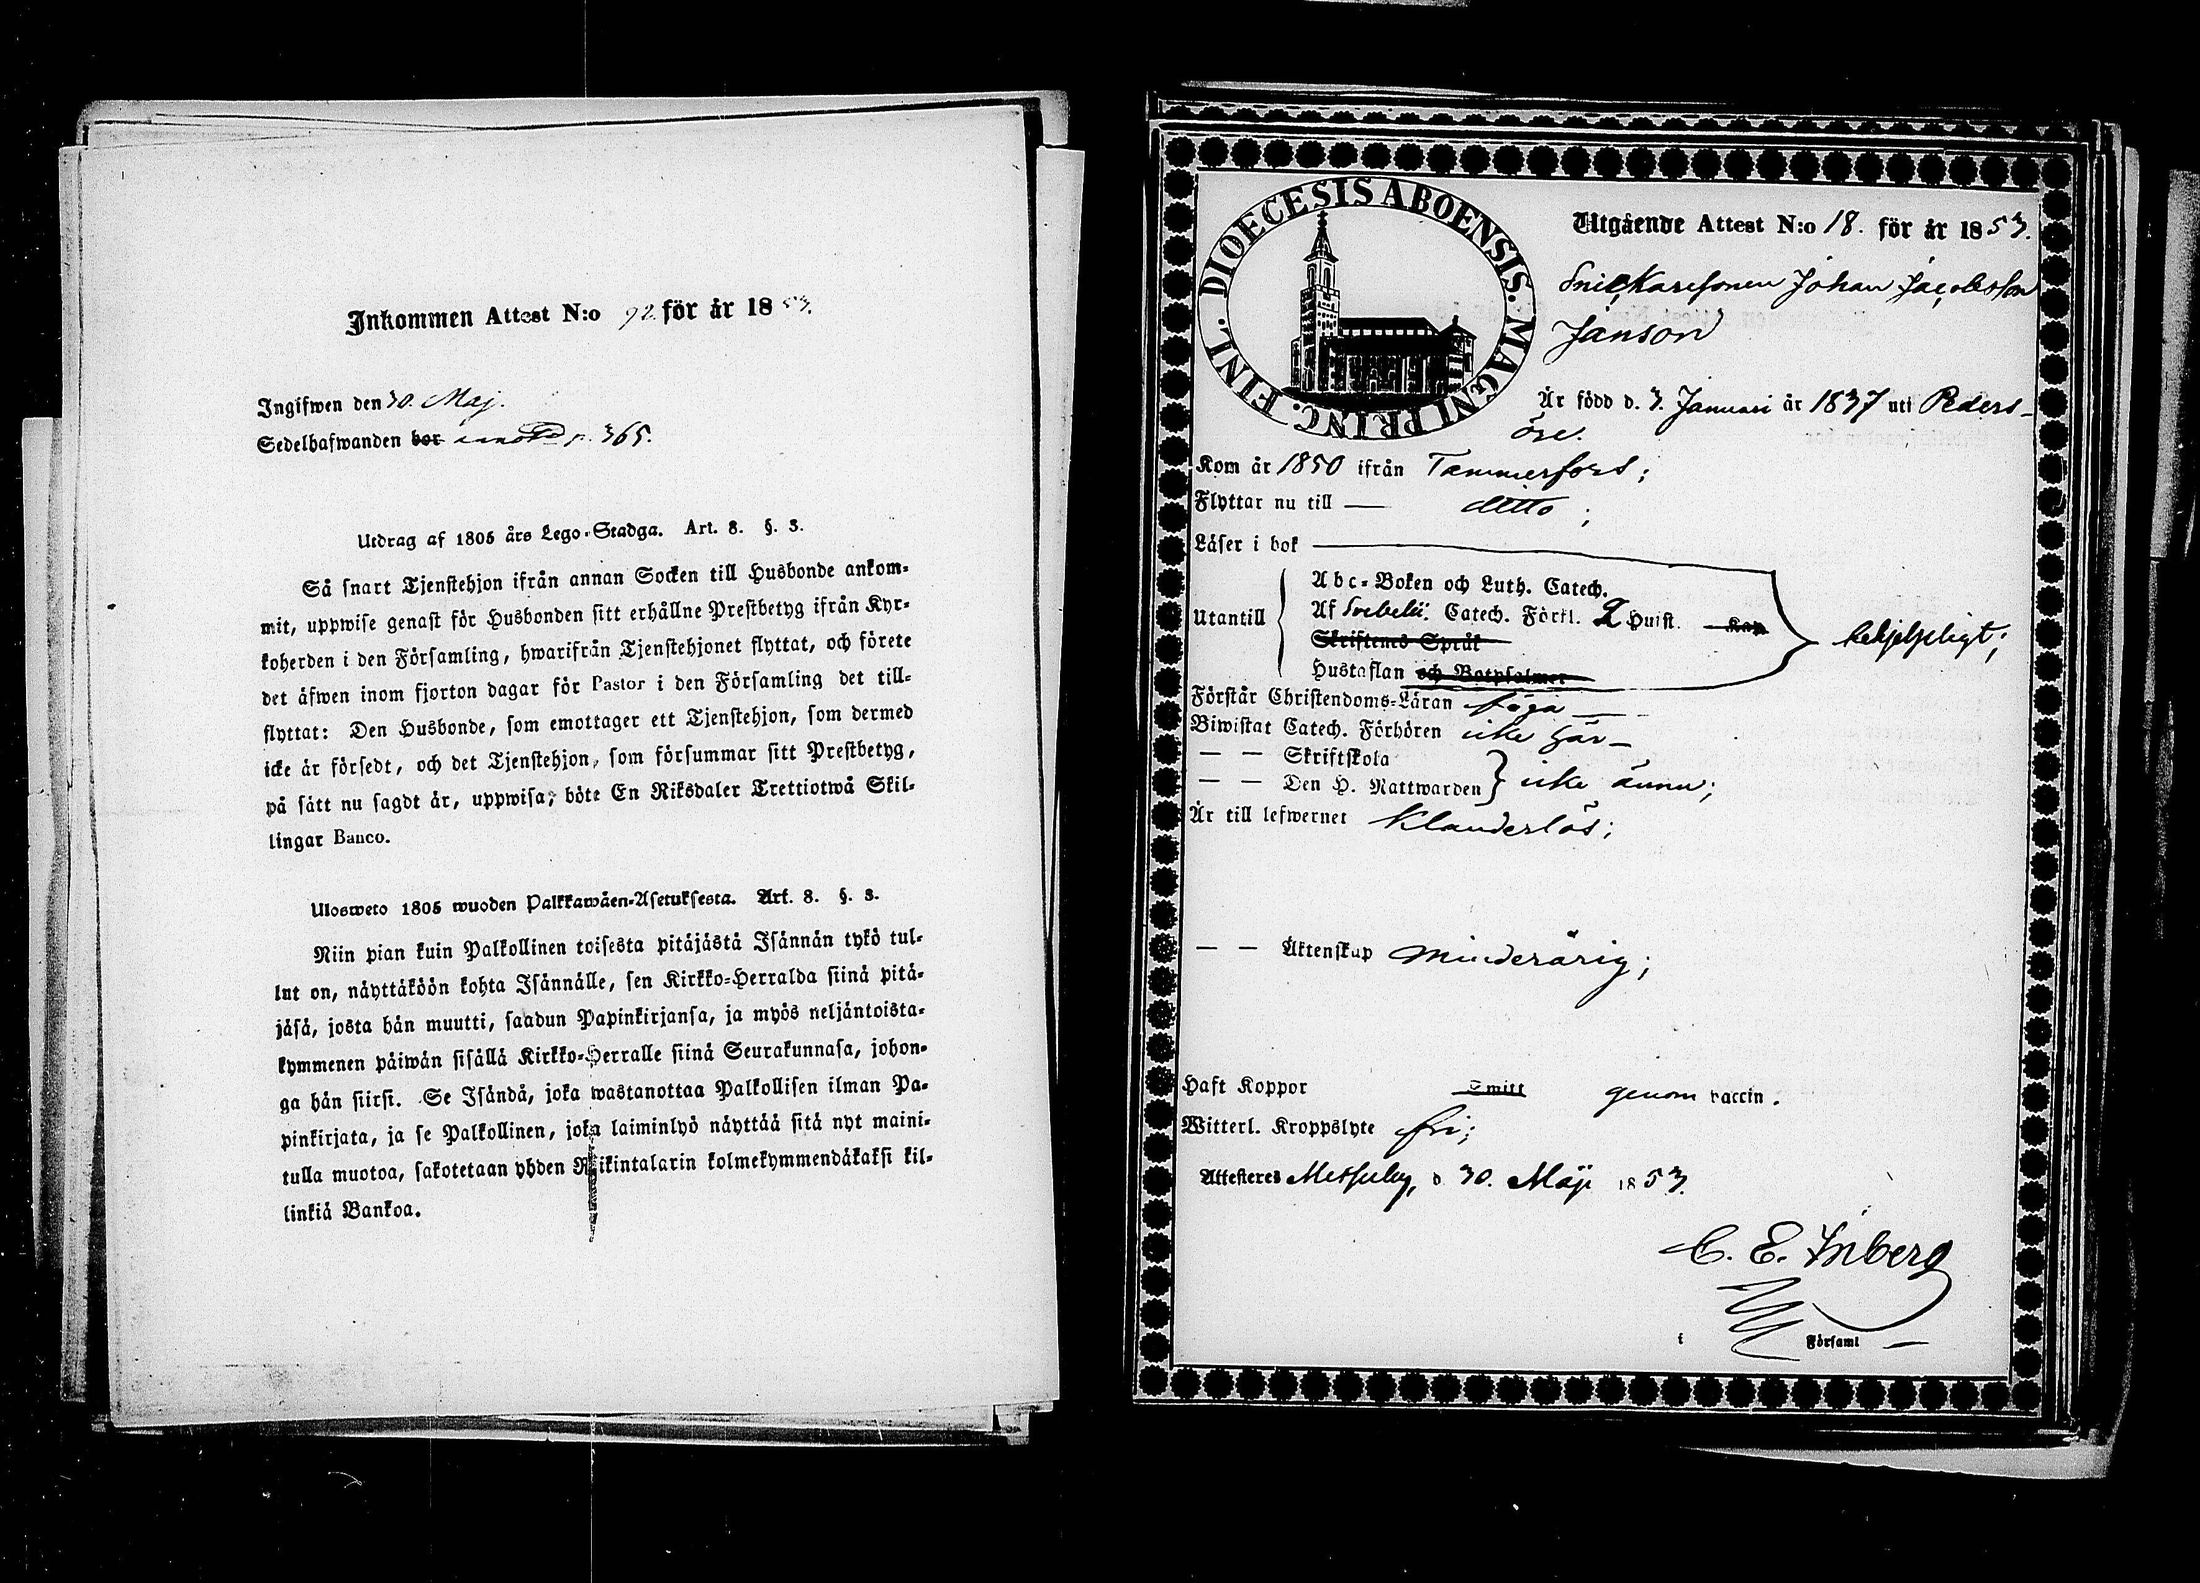 Inkommen Attest N:o 92. för år 1853.
Ingifwen den 30. Maj.
Sedelhafwanden bor p. 365.
Utdrag af 1805 års Lego-Stadga. Art. 8. §. 3.
Så snart Tjenstehjon ifrån annan Socken till Husbonde ankom-
mit, uppwise genast för Husbonden sitt erhållne Prestbetyg ifrån Kyr-
koherden i den Församling, hwarifrån Tjenstehjonet flyttat, och förete
det äfwen inom fjorton dagar för Pastor i den Församling det till-
flyttat: Den Husbonde, som emottager ett Tjenstehjon, som dermed
icke är försedt, och det Tjenstehjon, som försummar sitt Prestbetyg,
på sätt nu sagdt är, uppwisa, böte En Riksdaler Trettiotwå Skil-
lingar Banco.
Ulosweto 1805 wuoden Palkkawäen-Asetuksesta. Art. 8. §. 3.
Niin pian kuin Palkollinen toisesta pitäjästä Isännän tykö tul-
lut on, näyttäköön kohta Isännälle, sen Kirkko-Herralda siinä pitä-
jäsä, josta hän muutti, saadun Papinkirjansa, ja myös neljäntoista-
kymmenen päiwän sisällä Kirkko-Herralle siinä Seurakunnasa, johon-
ga hän siirsi. Se Isändä, joka wastanottaa Palkollisen ilman Pa-
pinkirjata, ja se Palkollinen, joka laiminlyö näyttää sitä nyt maini-
tulla muotoa, sakotetaan yhden Riikintalarin kolmekymmendäkaksi kil-
linkiä Bankoa.
DIOECESIS ABOENSIS. MAGNI PRINC. FINL.
Utgående Attest N:o 18. för år 1853.
Snickaresonen Johan Jacobsson
Janson
Är född d. 3. Januari år 1837 uti Peders-
öre.
Kom år 1850 ifrån Tammerfors;
Flyttar nu till — ditto;
Läser i bok
Abc-Boken och Luth. Catech.
Utantill Af Svebelii Catech. Förkl. 2 Huist. Kap.
Skriftenes Språk
Hustaflan och Botpsalmer
behjelpligt;
Förstår Christendoms-Läran föga —
Biwistat Catech. Förhören icke här —
— — Skriftskola
— — Den H. Nattwarden icke ännu;
Är till lefwernet klanderlös;
— — Äktenskap minderårig;
Haft Koppor Smitt genom vaccin.
Witterl. Kroppslyte fri;
Attesteres Messuby, d. 30. Maji 1853.
C. E. Inberg
i Församl —